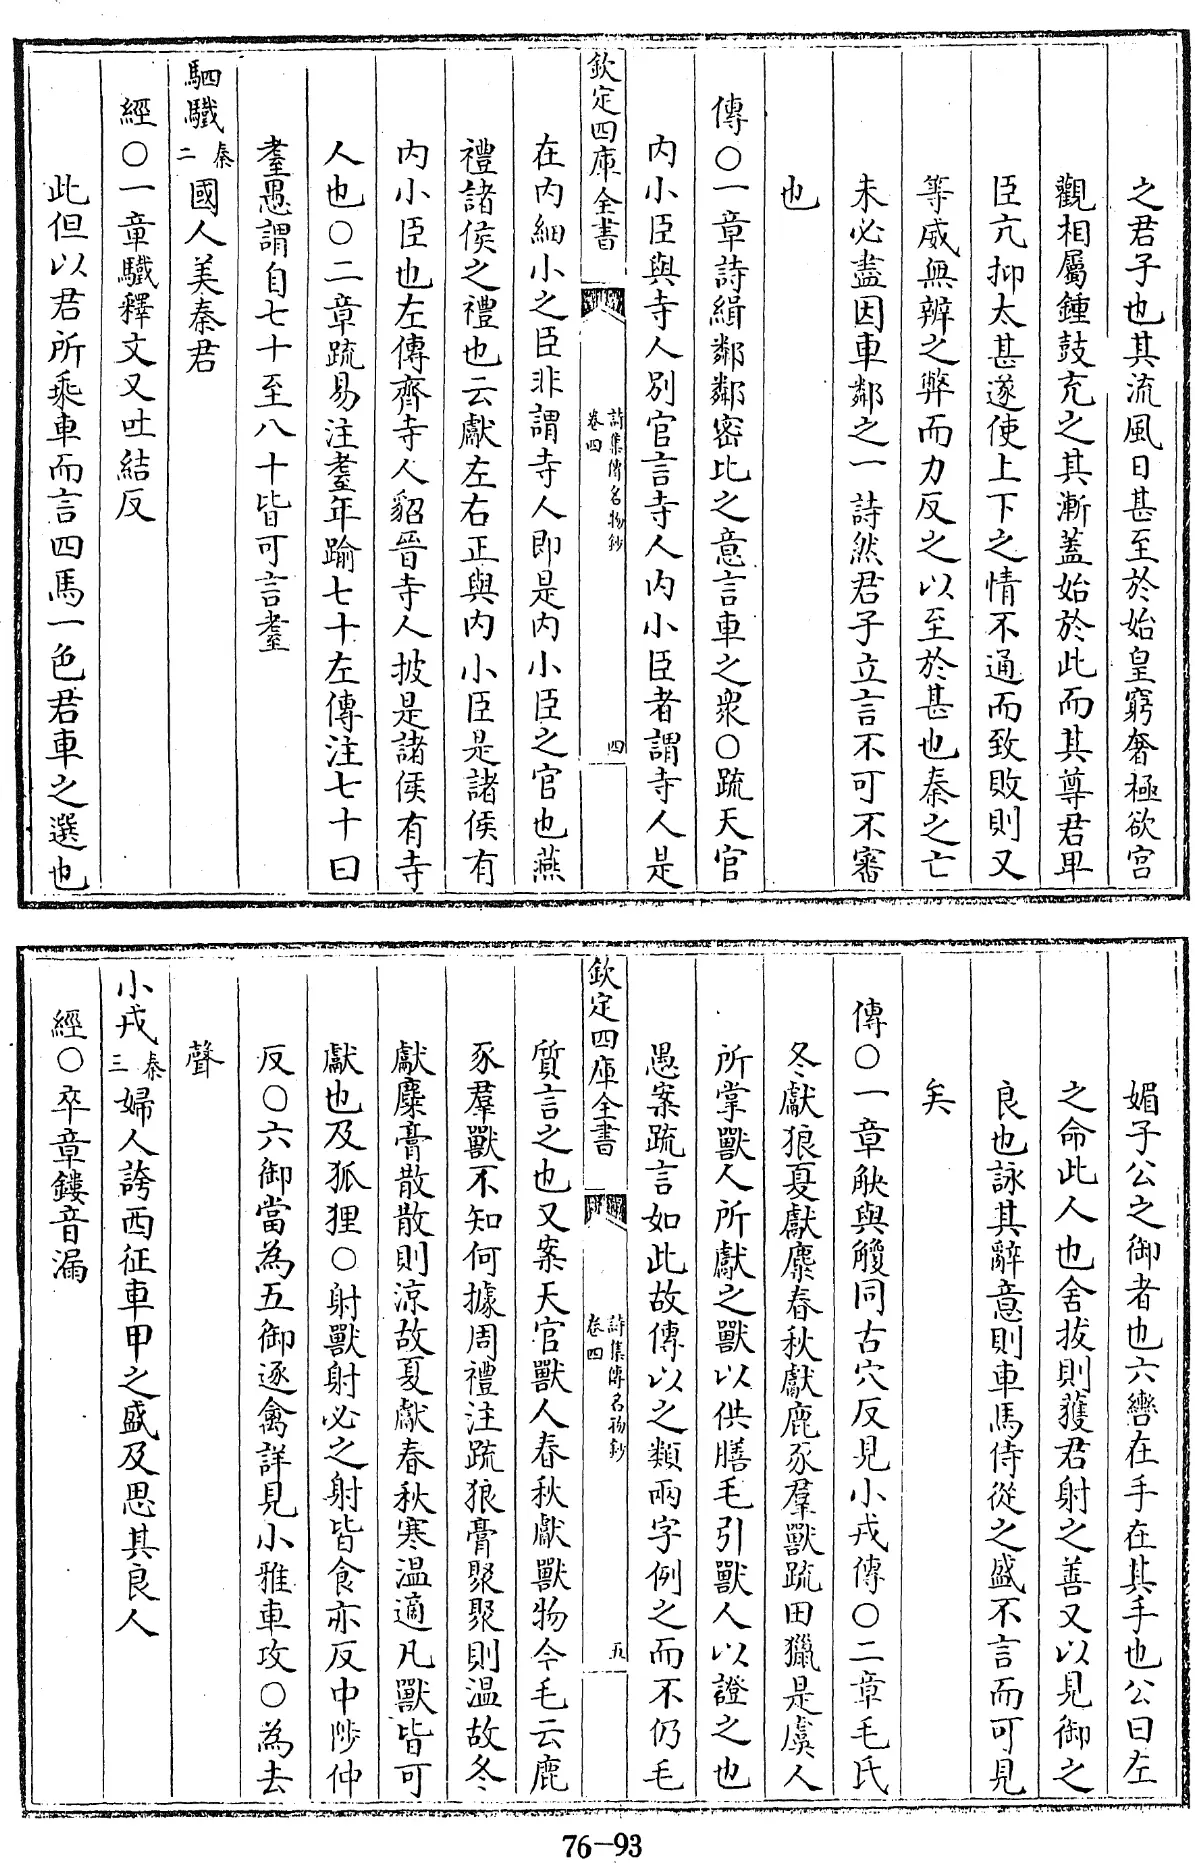 之君子也其流風日甚至於始皇窮奢極欲宫
觀相屬鍾鼓充之其漸蓋始於此而其尊君卑
臣亢抑太甚遂使上下之情不通而致敗則又
等威無辨之弊而力反之以至於甚也秦之亡
未必盡因車鄰之一詩然君子立言不可不審
也
傳○一章詩緝鄰鄰密比之意言車之衆○疏天官
内小臣與寺人别官言寺人内小臣者謂寺人是
欽定四庫全書
詩集傳名物鈔
卷四
四
在内細小之臣非謂寺人即是内小臣之官也燕
禮諸侯之禮也云獻左右正與内小臣是諸侯有
内小臣也左傳齊寺人貂晉寺人披是諸侯有寺
人也○二章疏易注耋年踰七十左傳注七十曰
耋愚謂自七十至八十皆可言耋
駟驖秦二國人美秦君
經○一章驖釋文又吐結反
此但以君所乘車而言四馬一色君車之選也
媚子公之御者也六轡在手在其手也公曰左
之命此人也舍拔則獲君射之善又以見御之
良也詠其辭意則車馬侍從之盛不言而可見
矣
傳○一章觖與觼同古穴反見小戎傳○二章毛氏
冬獻狼夏獻麋春秋獻鹿豕羣獸疏田獵是虞人
所掌獸人所獻之獸以供膳毛引獸人以證之也
愚案疏言如此故傳以之類兩字例之而不仍毛
欽定四庫全書
詩集傳名物鈔
卷四
五
質言之也又案天官獸人春秋獻獸物今毛云鹿
豕羣獸不知何據周禮注疏狼膏聚聚則温故冬
獻麋膏散散則涼故夏獻春秋寒温適凡獸皆可
獻也及狐狸○射獸射必之射皆食亦反中陟仲
反○六御當為五御逐禽詳見小雅車攻○為去
聲
小戎秦三婦人誇西征車甲之盛及思其良人
經○卒章鏤音漏
76-93